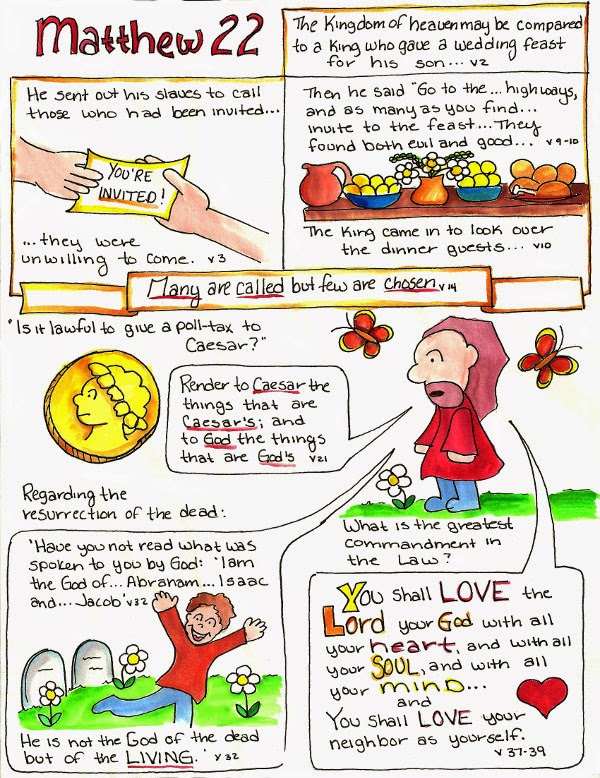 Matthew 22
The Kingdom of heaven may be compared
to a King who gave a wedding feast
for his son... v2
He sent out his slaves to call
those who had been invited...
YOU'RE
INVITED!
...they were
unwilling to come. v3
Then he said "Go to the... highways,
and as many as you find...
invite to the feast... They
found both evil and good... v9-10
The King came in to look over
the dinner guests... v10
Many are called but few are chosen v14
"Is it lawful to give a poll-tax to
Caesar?"
Render to Caesar the
things that are
Caesar's; and
to God the things
that are God's v21
Regarding the
resurrection of the dead:
'Have you not read what was
spoken to you by God: 'I am
the God of... Abraham... Isaac
and... Jacob' v32
He is not the God of the dead
but of the LIVING.' v32
What is the greatest
commandment in
the Law?
You shall LOVE the
Lord your God with all
your heart, and with all
your SOUL, and with all
your mind...
and
You shall LOVE your
neighbor as yourself.
v37-39